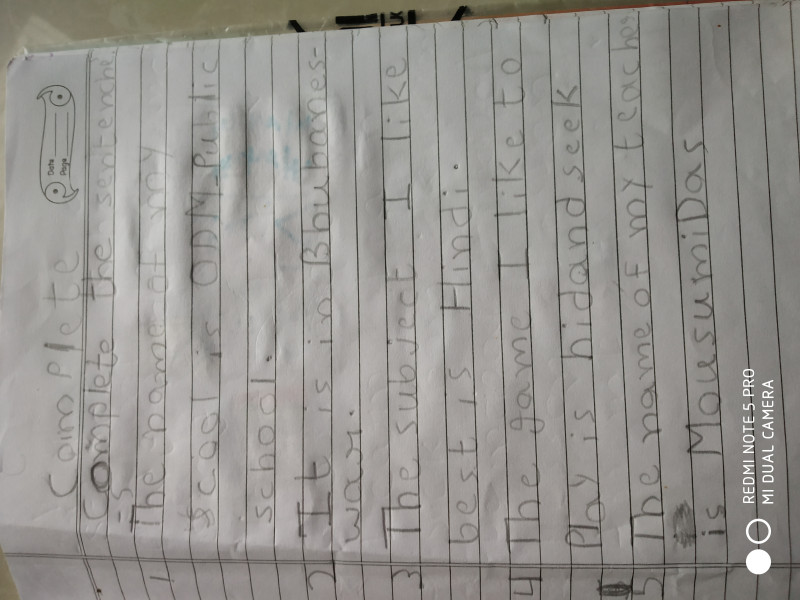 Date
Page
Complete
Complete the sentenche
:-s
1 The name of my
scool is ODM Public
school.
2 It is in Bhubanes-
war.
3 The subject I like
best is Hindi.
4 The game I like to
Play is hidand seek
5 The name of my teacher
is Mousumi Das
REDMI NOTE 5 PRO
MI DUAL CAMERA